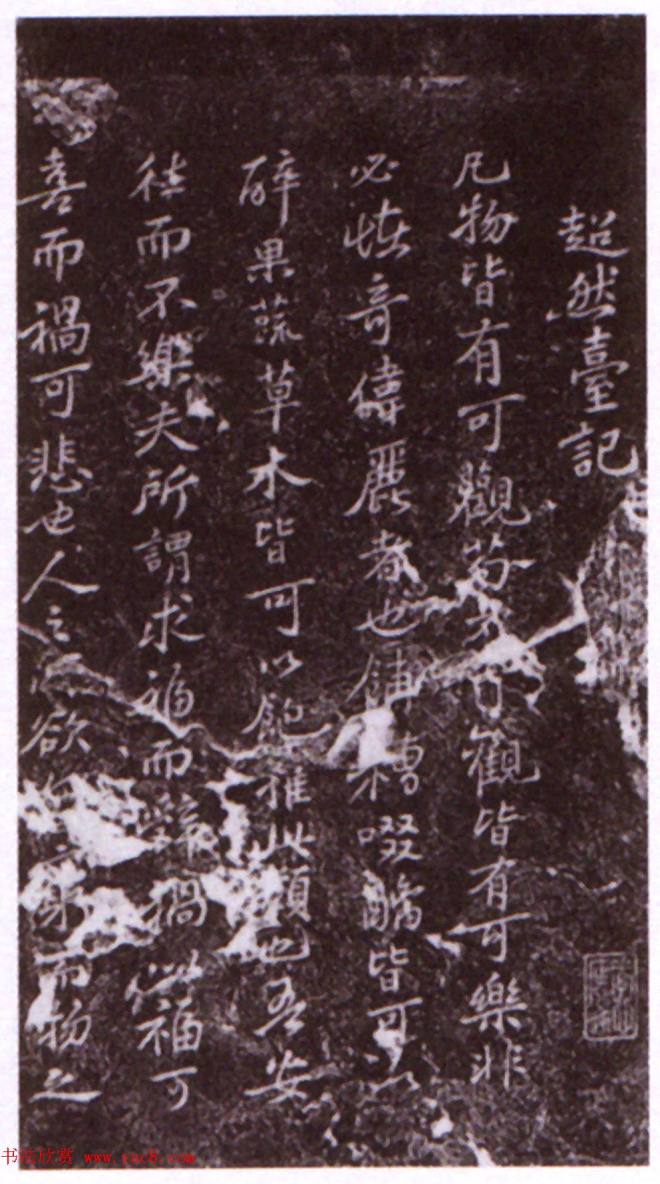 超然臺記
凡物皆有可觀苟有可觀皆有可樂非
必恠奇偉麗者也餔糟啜醨皆可以
醉果蔬草木皆可以飽推此類也吾安
往而不樂夫所謂求福而辭禍以福可
喜而禍可悲也人之所欲無窮而物之
书法欣赏 www.yac8.com